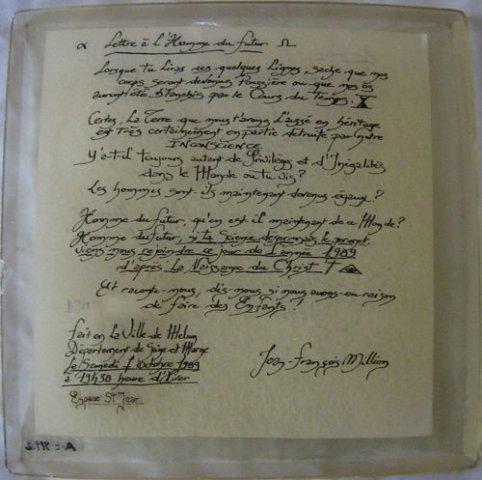 α Lettre à l'Homme du futur Ω
Lorsque tu liras ces quelques Lignes, sache que nos
corps seront devenus Poussière ou que nos os
auront été blanchis par le Cours du Temps. X
Certes, La Terre que nous t'avons Laissé en héritage
est Très certainement en partie détruite par notre
INCONSCIENCE
Y'a-t-il toujours autant de Privilèges et d'Inégalités
dans le Monde ou tu vis?
Les hommes sont ils maintenant devenus égaux?
Homme du futur, qu'en est il maintenant de ce Monde?
Homme du futur, si ta Science désormais le permet,
viens nous rejoindre ce jour de l'année 1989
d'après La Naissance du Christ †
Et raconte-nous, dis-nous si nous avons eu raison
de faire des Enfants!
fait en La Ville de Melun
Département de Seine et Marne
Le Samedi 1 octobre 1989
à 19h30 heure d'Hiver
Espace St Jean
Jean-François Million
n°1